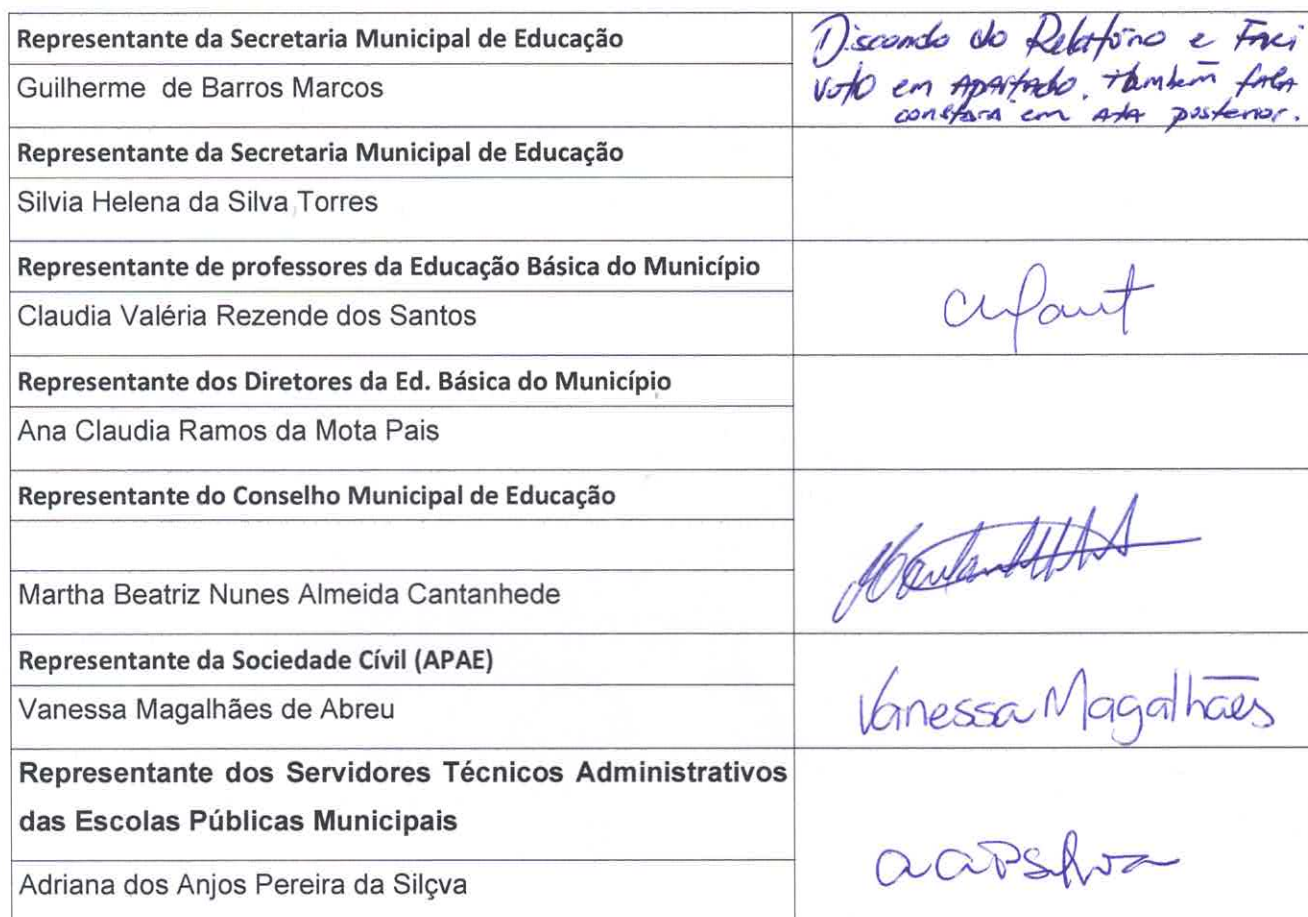 Representante da Secretaria Municipal de Educação
Guilherme de Barros Marcos
Discordo do Relatório e Farei
voto em Apartado. Também
constará em Ata posterior.
Representante da Secretaria Municipal de Educação
Silvia Helena da Silva Torres
Representante de professores da Educação Básica do Município
Claudia Valéria Rezende dos Santos
Representante dos Diretores da Ed. Básica do Município
Ana Claudia Ramos da Mota Pais
Representante do Conselho Municipal de Educação
Martha Beatriz Nunes Almeida Cantanhede
Representante da Sociedade Cívil (APAE)
Vanessa Magalhães de Abreu
Vanessa Magalhães
Representante dos Servidores Técnicos Administrativos
das Escolas Públicas Municipais
Adriana dos Anjos Pereira da Silçva
aaPSilva